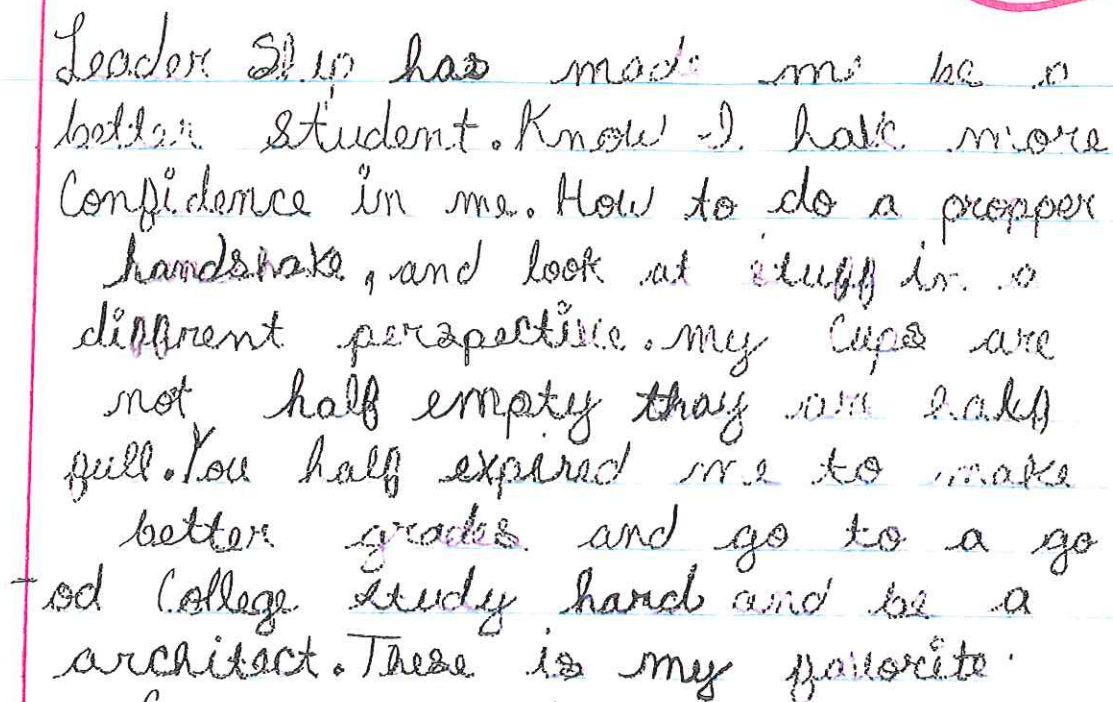 Leader Ship has made me be a
better student. Know I half more
Confidence in me. How to do a propper
handshake, and look at stuff in a
diffrent perspective. My Cups are
not half empty thay are half
full. You half expired me to make
better grades and go to a go
-od College study hard and be a
architect. These is my favorite